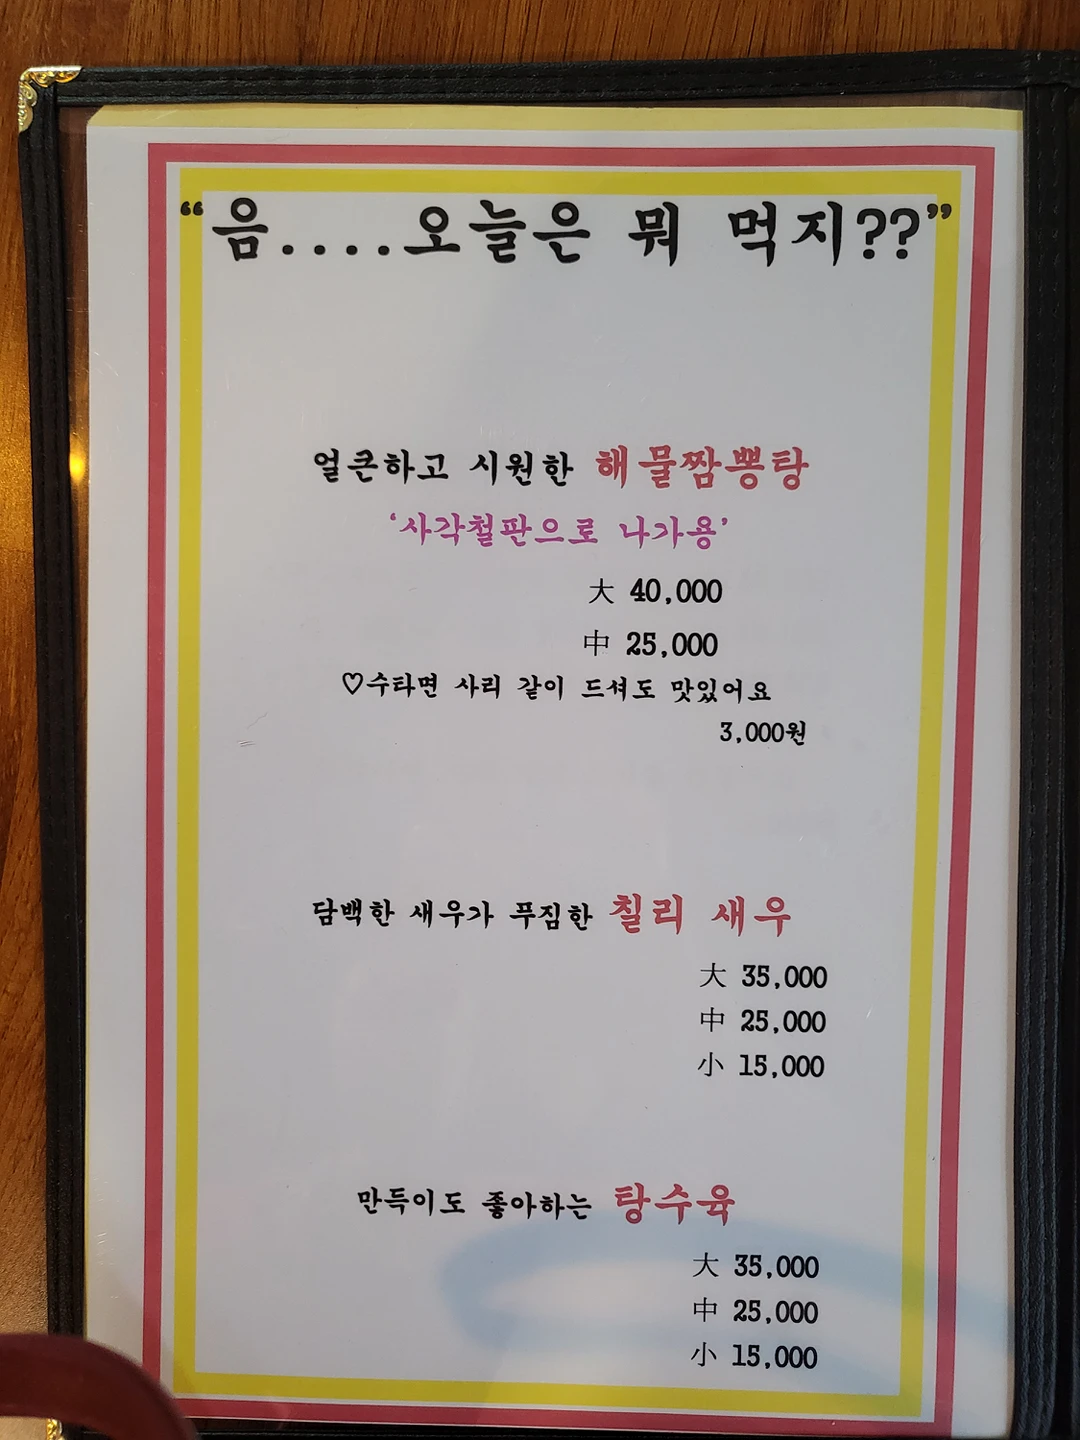 “음....오늘은 뭐 먹지??”
얼큰하고 시원한 해물짬뽕탕
‘사각철판으로 나가용’
大 40,000
中 25,000
♡수타면 사리 같이 드셔도 맛있어요
3,000원
담백한 새우가 푸짐한 칠리 새우
大 35,000
中 25,000
小 15,000
만득이도 좋아하는 탕수육
大 35,000
中 25,000
小 15,000